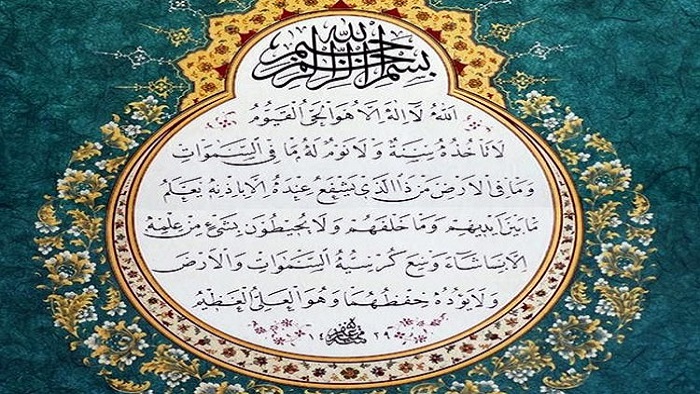 بِسْمِ اللهِ الرَّحْمٰنِ الرَّحِيمِ
اَللهُ لَا اِلٰهَ اِلَّا هُوَ الْحَىُّ الْقَيُّومُ
لَا تَاْخُذُهُ سِنَةٌ وَلَا نَوْمٌ لَهُ مَا فِى السَّمٰوَاتِ
وَمَا فِى الْاَرْضِ مَنْ ذَا الَّذِى يَشْفَعُ عِنْدَهُ اِلَّا بِاِذْنِهِ يَعْلَمُ
مَا بَيْنَ اَيْدِيهِمْ وَمَا خَلْفَهُمْ وَلَا يُحِيطُونَ بِشَىْءٍ مِنْ عِلْمِهِ
اِلَّا بِمَا شَاءَ وَسِعَ كُرْسِيُّهُ السَّمٰوَاتِ وَالْاَرْضَ
وَلَا يَؤُدُهُ حِفْظُهُمَا وَهُوَ الْعَلِىُّ الْعَظِيمُ
١٤٢٩